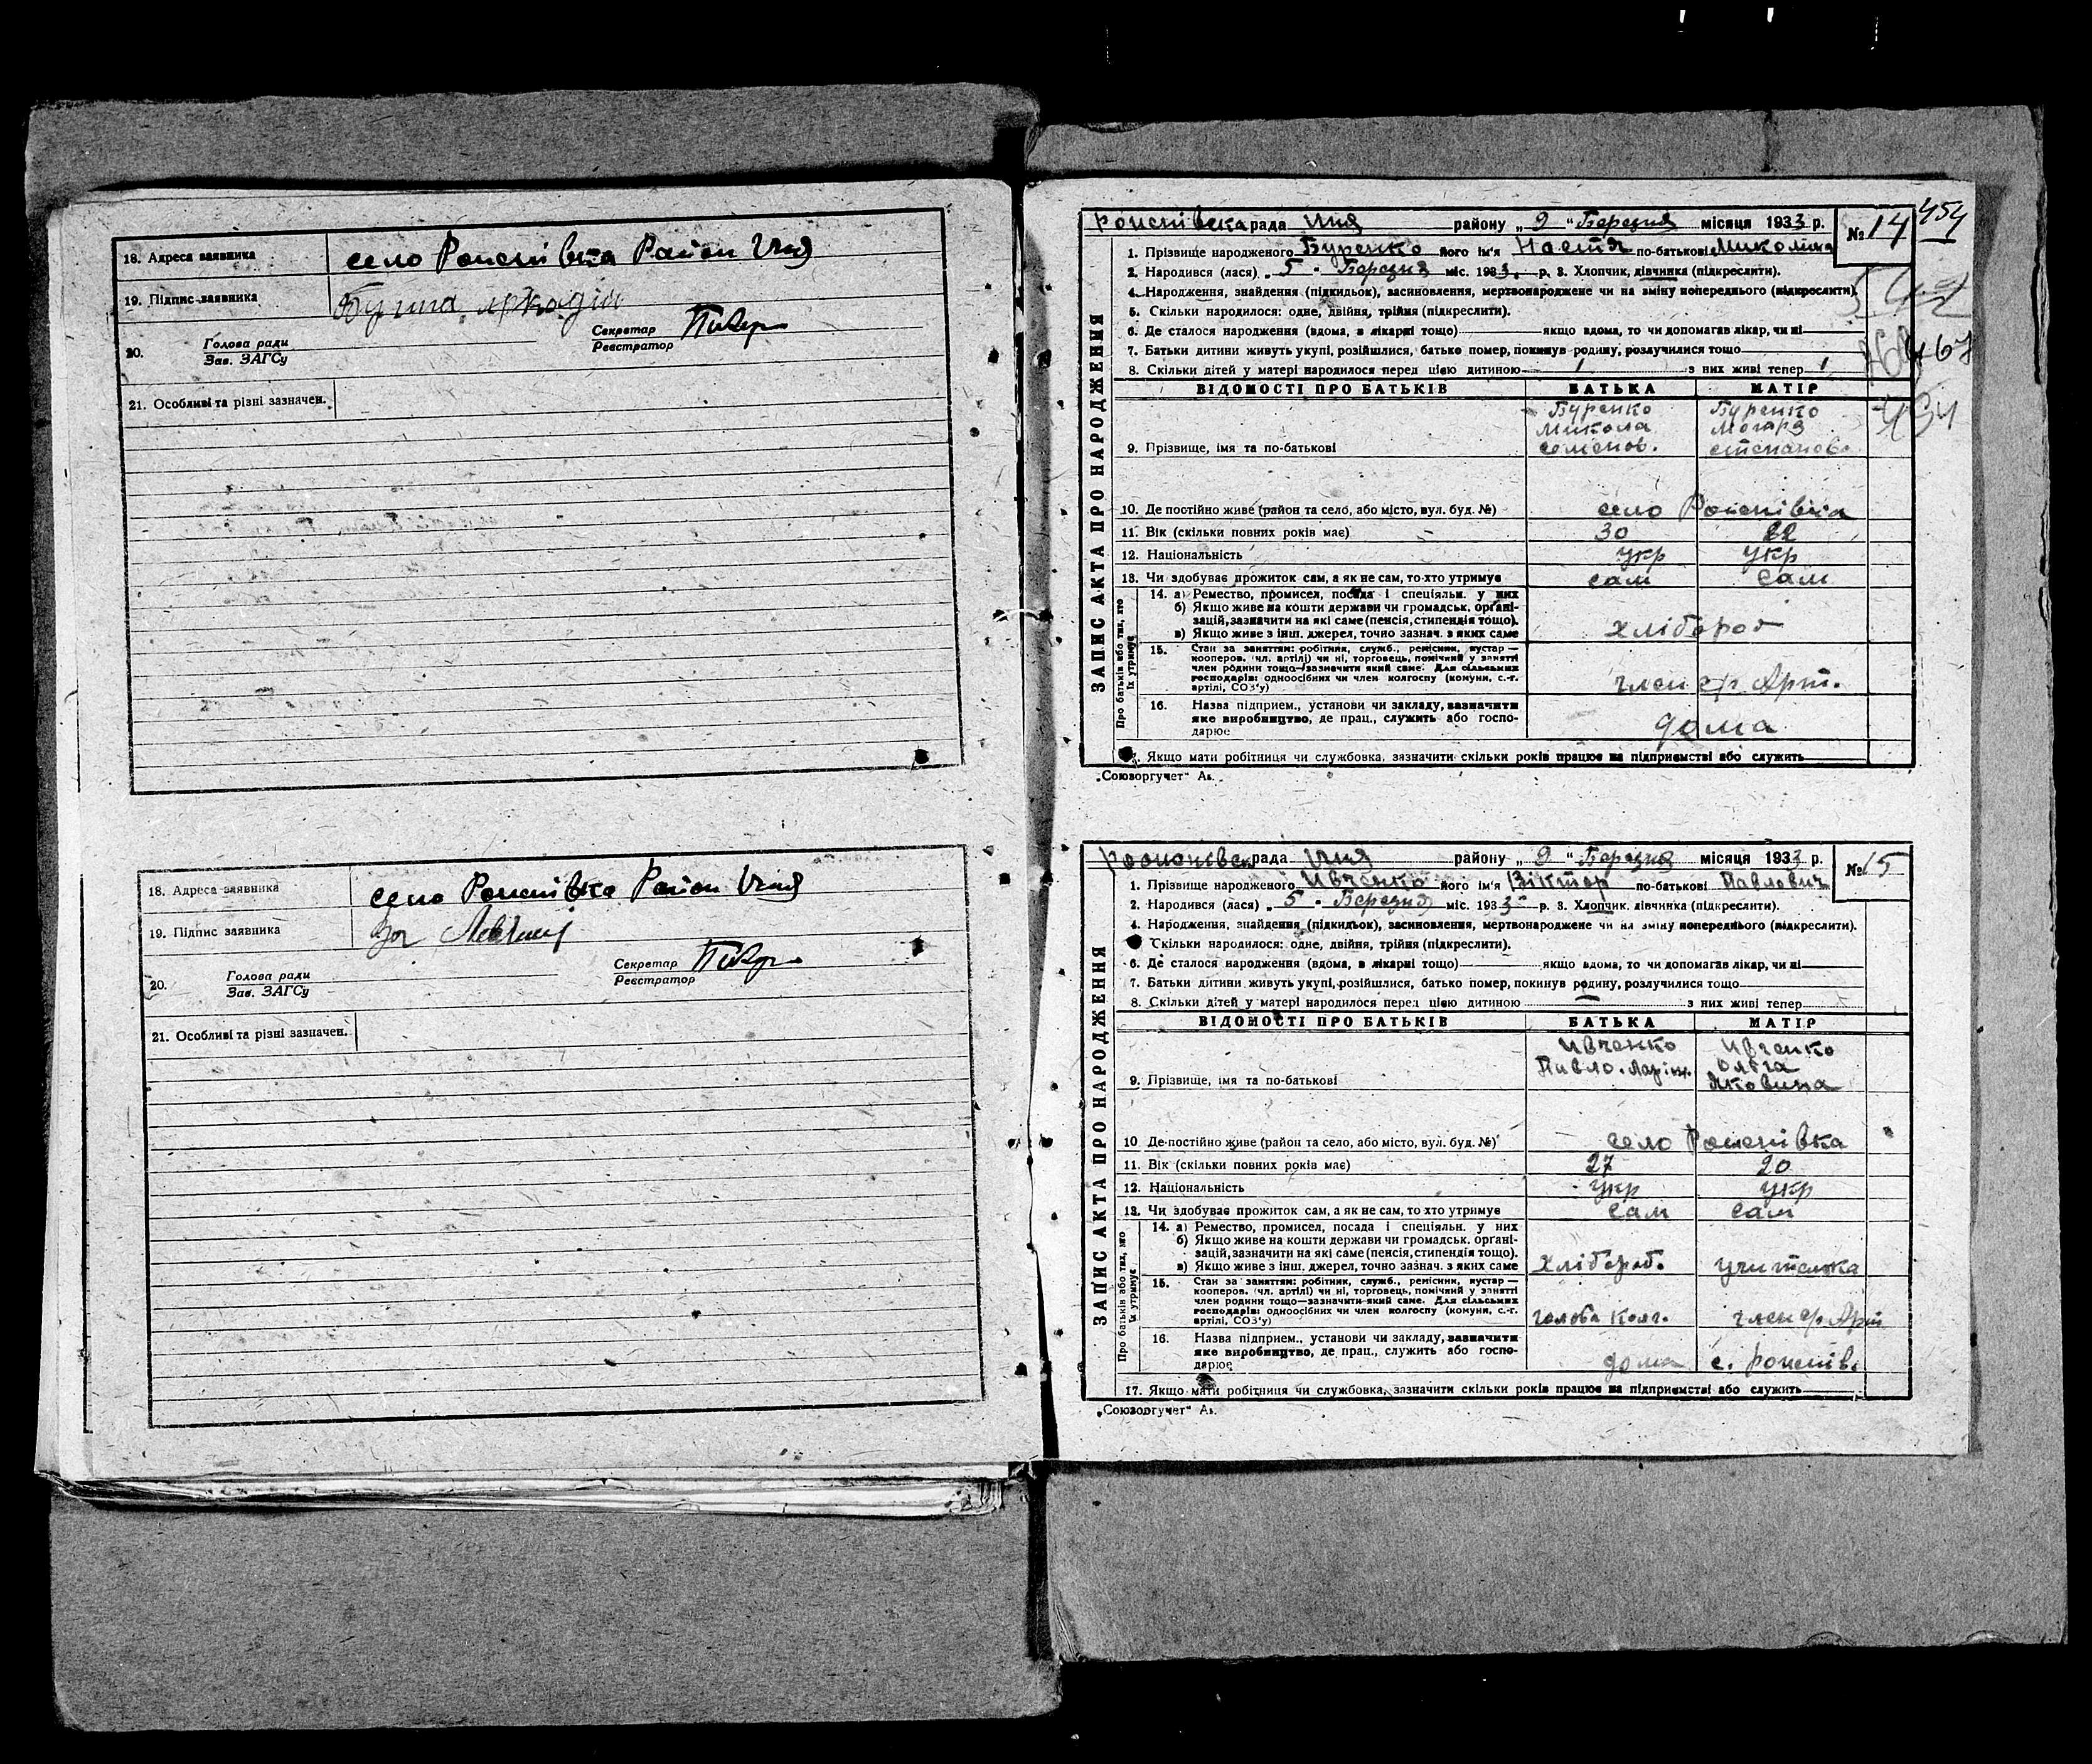 18. Адреса заявника село Ропенівка Район Ічня
19. Підпис заявника
20. Голова ради Секретар
Зав. ЗАГСу Реєстратор
21. Особливі та різні зазначен.
18. Адреса заявника село Ропенівка Район Ічня
19. Підпис заявника
20. Голова ради Секретар
Зав. ЗАГСу Реєстратор
21. Особливі та різні зазначен.
ЗАПИС АКТА ПРО НАРОДЖЕННЯ
рада Ичня району „ 9 “ Березня місяця 1933 р. № 14 454
1. Прізвище народженого Буренко його ім'я Настя по-батькові Миколаивна
2. Народився (лася) „ 5 “ Березня міс. 1933 р. 3. Хлопчик, дівчинка (підкреслити).
4. Народження, знайдення (підкидьок), засиновлення, мертвонароджене чи на зміну попереднього (підкреслити)
5. Скільки народилося: одне, двійня, трійня (підкреслити).
6. Де сталося народження (вдома, в лікарні тощо) якщо вдома, то чи допомагав лікар, чи ні
7. Батьки дитини живуть укупі, розійшлися, батько помер, покинув родину, розлучилися тощо 467
8. Скільки дітей у матері народилося перед цією дитиною 1 з них живі тепер 1
ВІДОМОСТІ ПРО БАТЬКІВ БАТЬКА МАТІР
434
Буренко Буренко
Микола
9. Прізвище, імя та по-батькові семенов. степанов.
10. Де постійно живе (район та село, або місто, вул. буд. №) село Ропенівка
11. Вік (скільки повних років має) 30 22
12. Національність укр укр
13. Чи здобуває прожиток сам, а як не сам, то хто утримує сам сам
Про батьків або тих, хто їх утримує
14. а) Ремество, промисел, посада і спеціяльн. у них
б) Якщо живе на кошти держави чи громадськ. органі-
зацій, зазначити на які саме (пенсія, стипендія тощо).
в) Якщо живе з інш. джерел, точно зазнач. з яких саме хлібороб
15. Стан за заняттям: робітник, служб., ремісник, кустар —
кооперов. (чл. артілі) чи ні, торговець, помічний у занятті
член родини тощо—зазначити який саме. Для сільських
господарів: одноосібних чи член колгоспу (комуни, с.-г.
артілі, СОЗ'у) член ср Арт.
16. Назва підприєм., установи чи закладу, зазначити
яке виробництво, де прац., служить або госпо-
дарює дома
17. Якщо мати робітниця чи службовка, зазначити скільки років працює на підприємстві або служить
„Союзоргучет“
ЗАПИС АКТА ПРО НАРОДЖЕННЯ
рада Ичня району „ 9 “ Березня місяця 1933 р. № 15
1. Прізвище народженого Ивченко його ім'я Віктор по-батькові Павлович
2. Народився (лася) „ 5 “ Березня міс. 1933 р. 3. Хлопчик, дівчинка (підкреслити).
4. Народження, знайдення (підкидьок), засиновлення, мертвонароджене чи на зміну попереднього (підкреслити).
Скільки народилося: одне, двійня, трійня (підкреслити).
6. Де сталося народження (вдома, в лікарні тощо) якщо вдома, то чи допомагав лікар, чи ні
7. Батьки дитини живуть укупі, розійшлися, батько помер, покинув родину, розлучилися тощо
8. Скільки дітей у матері народилося перед цією дитиною — з них живі тепер
ВІДОМОСТІ ПРО БАТЬКІВ БАТЬКА МАТІР
Ивченко Ивченко
Павло Ольга
9. Прізвище, імя та по-батькові Яковивна
10 Де постійно живе (район та село, або місто, вул. буд. №) село Ропенівка
11. Вік (скільки повних років має) 27 20
12. Національність укр укр
13. Чи здобуває прожиток сам, а як не сам, то хто утримує сам сам
Про батьків або тих, хто їх утримує
14. а) Ремество, промисел, посада і спеціяльн. у них
б) Якщо живе на кошти держави чи громадськ. органі-
зацій, зазначити на які саме (пенсія, стипендія тощо).
в) Якщо живе з інш. джерел, точно зазнач. з яких саме хлібороб. учителька
15. Стан за заняттям: робітник, служб., ремісник, кустар —
кооперов. (чл. артілі) чи ні, торговець, помічний у занятті
член родини тощо—зазначити який саме. Для сільських
господарів: одноосібних чи член колгоспу (комуни, с.-г.
артілі, СОЗ'у) голова колг. член ср Арт
16. Назва підприєм., установи чи закладу, зазначити
яке виробництво, де прац., служить або госпо-
дарює дома с. ропенів.
17. Якщо мати робітниця чи службовка, зазначити скільки років працює на підприємстві або служить
„Союзоргучет“